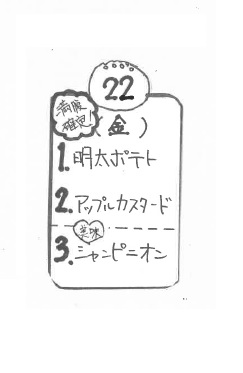 22
満腹
確定!
(金)
1.明太ポテト
2.アップルカスタード
美味
3.シャンピニオン